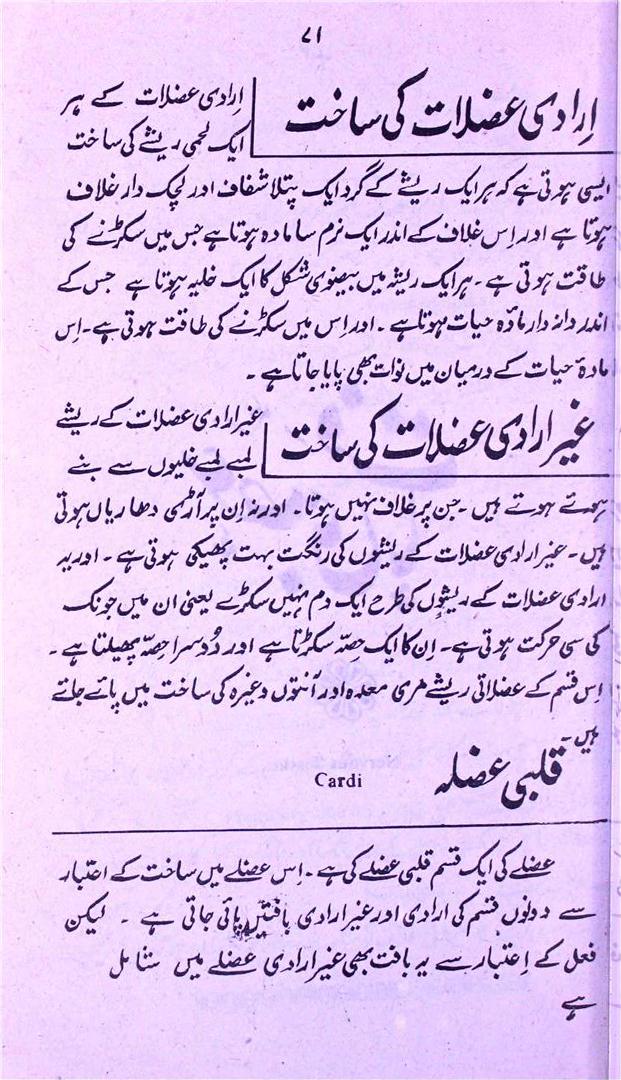 ۷۱
اِرادی عضلات کی ساخت
اِرادی عضلات کے ہر
ایک لحمی ریشے کی ساخت
ایسی ہوتی ہے کہ ہر ایک ریشے کے گرد ایک پتلا شفاف اور لچک دار غلاف
ہوتا ہے اور اِس غلاف کے اندر ایک نرم سا مادہ ہوتا ہے جس میں سکڑنے کی
طاقت ہوتی ہے ۔ ہر ایک ریشہ میں بیضوی شکل کا ایک خلیہ ہوتا ہے جس کے
اندر دانہ دار مادّہ حیات ہوتا ہے ۔ اور اِس میں سکڑنے کی طاقت ہوتی ہے ۔ اِس
مادۂ حیات کے درمیان میں نوات بھی پایا جاتا ہے ۔
غیر ارادی عضلات کی ساخت
غیر ارادی عضلات کے ریشے
لمبے لمبے خلیوں سے بنے
ہوئے ہوتے ہیں ۔ جن پر غلاف نہیں ہوتا ۔ اور نہ اِن پر آڑی دھاریاں ہوتی
ہیں ۔ غیر ارادی عضلات کے ریشوں کی رنگت بہت پھیکی ہوتی ہے ۔ اور یہ
ارادی عضلات کے ریشوں کی طرح ایک دم نہیں سکڑتے یعنی ان میں جونک
کی سی حرکت ہوتی ہے ۔ اِن کا ایک حصّہ سکڑتا ہے اور دُوسرا حصّہ پھیلتا ہے ۔
اِس قسم کے عضلاتی ریشے مری معدہ اور آنتوں وغیرہ کی ساخت میں پائے جاتے
ہیں ۔
قلبی عضلہ Cardi
عضلے کی ایک قسم قلبی عضلے کی ہے ۔ اِس عضلے میں ساخت کے اعتبار
سے دونوں قسم کی ارادی اور غیر ارادی بافتیں پائی جاتی ہے ۔ لیکن
فعل کے اِعتبار سے یہ بافت بھی غیر ارادی عضلے میں شامل
ہے